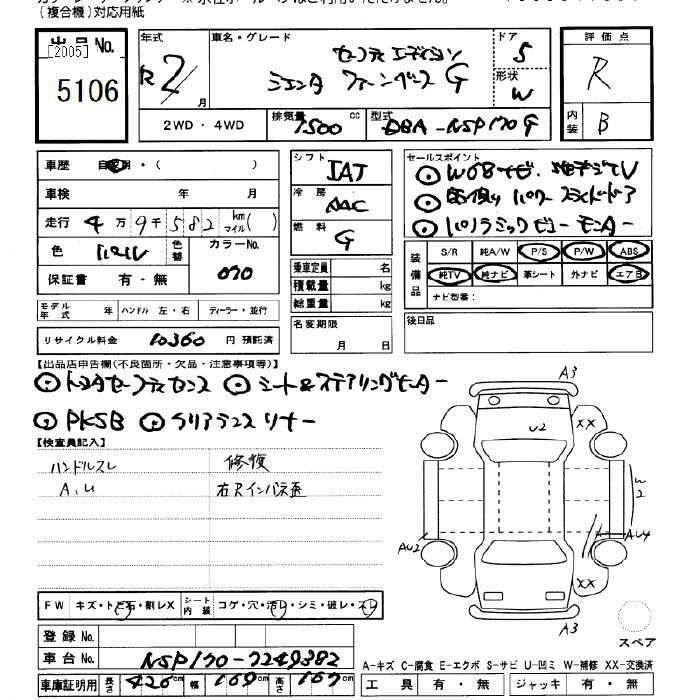 (複合機)対応用紙
出品 No.
[2005]
5106
年式
R2
月
車名・グレード
セーフティ エディション
シエンタ ファンベース G
ドア
5
形状
W
評価点
R
内装
B
2WD ・ 4WD
排気量
1500
cc
型式
DBA-NSP170G
車歴 自家用・( )
車検 年 月
走行 4万9千582 km マイル( )
色
色替
カラーNo.
070
保証書 有・無
シフト
IAT
冷房
AAC
燃料
G
乗車定員 名
積載量 kg
総重量 kg
セールスポイント
◎ W68ナビ. 地デジTV
◎ 両側 パワースライドドア
◎ パノラミックビューモニター
装備品
S/R 純A/W P/S P/W ABS
純TV 純ナビ 革シート 外ナビ エアB
ナビ型番:
モデル年式 年 ハンドル 左・右 ディーラー・並行
リサイクル料金 10360 円 預託済
名変期限
月 日
後日品
【出品店申告欄(不良箇所・欠品・注意事項等)】
◎トヨタセーフティセンス ◎シート&ステアリングヒーター
◎ PKSB ◎クリアランス ソナー
【検査員記入】
ハンドルスレ 修復
A.U 右Rインパネ歪
A3
U2
XX
W2
AU2
AU4
XX
A3
スペア
FW キズ・トビ石・割レX
シート内装 コゲ・穴・汚レ・シミ・破レ・スレ
登録 No.
車台 No. NSP170-7249382
車庫証明用 長さ 426 cm 幅 169 cm 高さ 167 cm
A-キズ C-腐食 E-エクボ S-サビ U-凹ミ W-補修 XX-交換済
工具 有・無 ジャッキ 有・無